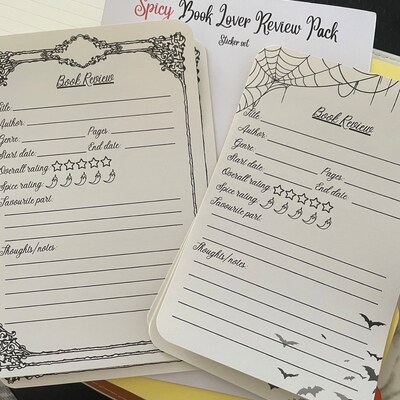 Spicy Book Lover Review Pack
Sticker set
Book Review
Title:
Author:
Genre: Pages:
Start date: End date:
Overall rating:
Spice rating:
Favourite part:
Thoughts/notes:
Book Review
Title:
Author:
Genre: Pages:
Start date: End date:
Overall rating:
Spice rating:
Favourite part:
Thoughts/notes: